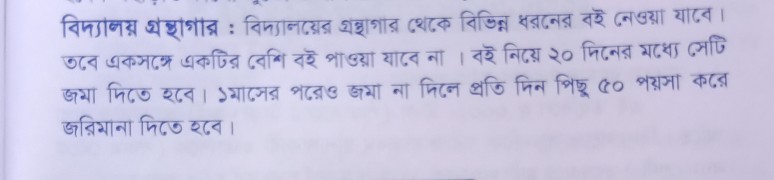 বিদ্যালয় গ্রন্থাগার : বিদ্যালয়ের গ্রন্থাগার থেকে বিভিন্ন ধরনের বই নেওয়া যাবে।
তবে একসঙ্গে একটির বেশি বই পাওয়া যাবে না । বই নিয়ে ২০ দিনের মধ্যে সেটি
জমা দিতে হবে। ১মাসের পরেও জমা না দিলে প্রতি দিন পিছু ৫০ পয়সা করে
জরিমানা দিতে হবে।